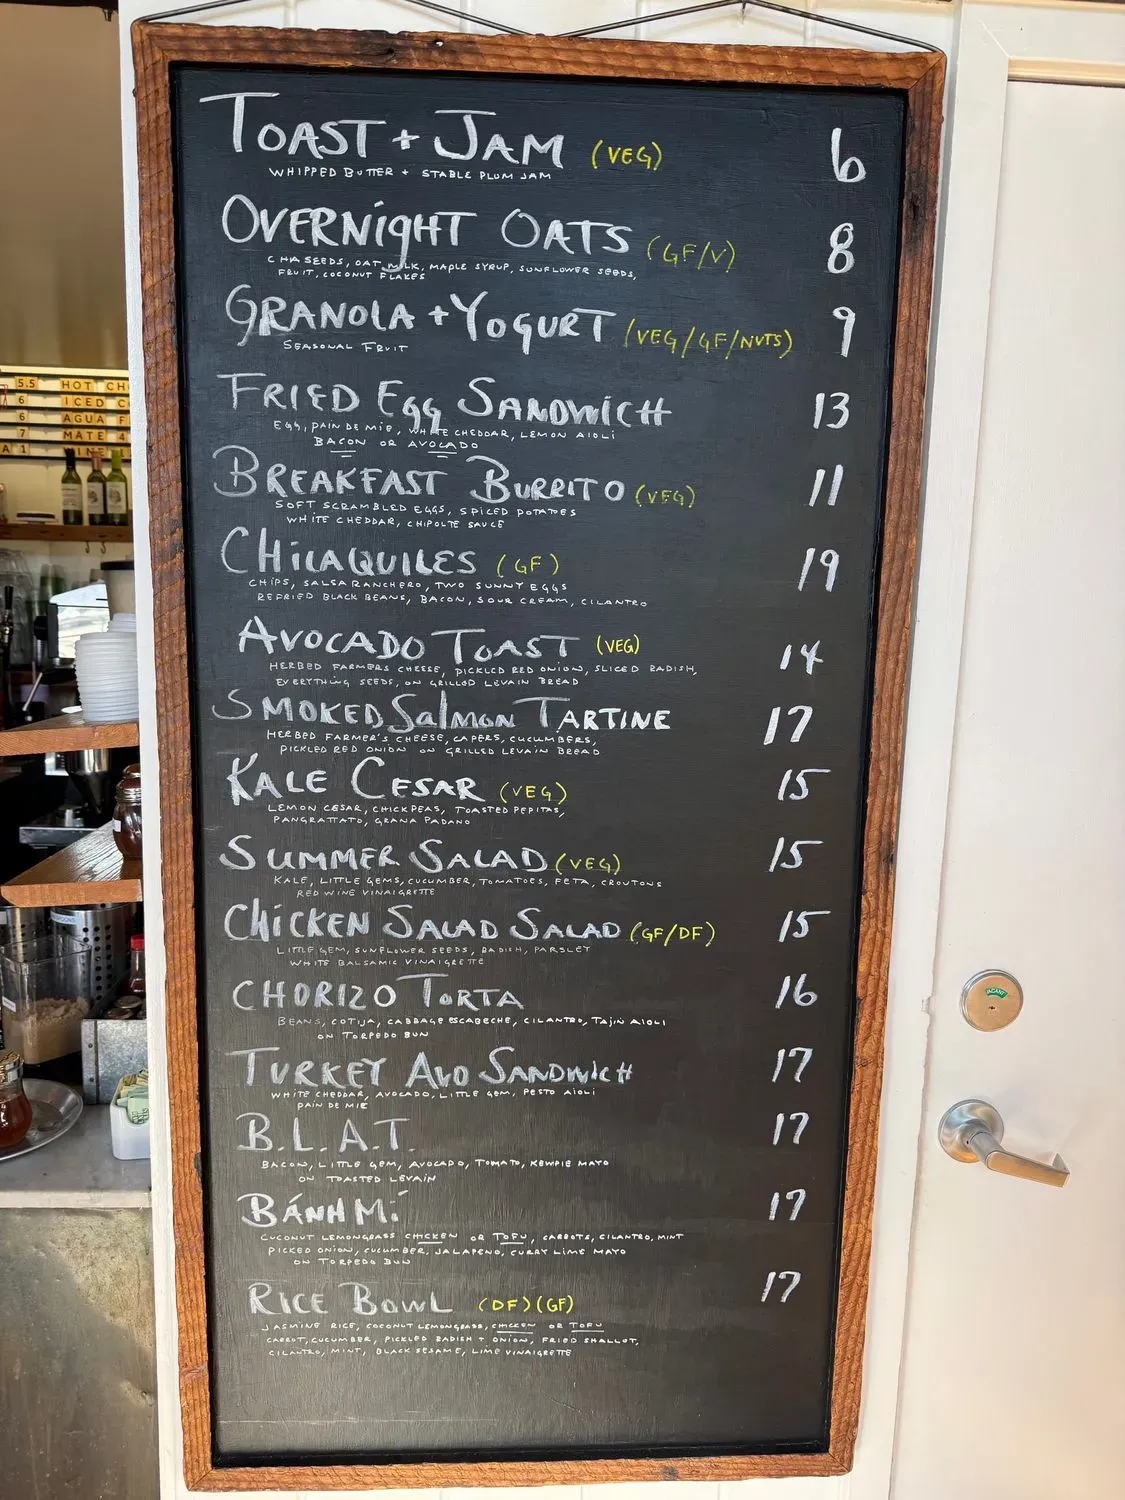 TOAST + JAM (VEG) 6
WHIPPED BUTTER + STABLE PLUM JAM
OVERNIGHT OATS (GF/V) 8
CHIA SEEDS, OAT MILK, MAPLE SYRUP, SUNFLOWER SEEDS,
FRUIT, COCONUT FLAKES
GRANOLA + YOGURT (VEG/GF/NUTS) 9
SEASONAL FRUIT
FRIED EGG SANDWICH 13
EGG, PAIN DE MIE, WHITE CHEDDAR, LEMON AIOLI
BACON OR AVOCADO
BREAKFAST BURRITO (VEG) 11
SOFT SCRAMBLED EGGS, SPICED POTATOES
WHITE CHEDDAR, CHIPOLTE SAUCE
CHILAQUILES (GF) 19
CHIPS, SALSA RANCHERO, TWO SUNNY EGGS
REFRIED BLACK BEANS, BACON, SOUR CREAM, CILANTRO
AVOCADO TOAST (VEG) 14
HERBED FARMERS CHEESE, PICKLED RED ONION, SLICED RADISH,
EVERYTHING SEEDS, ON GRILLED LEVAIN BREAD
SMOKED Salmon TARTINE 17
HERBED FARMER'S CHEESE, CAPERS, CUCUMBERS,
PICKLED RED ONION ON GRILLED LEVAIN BREAD
KALE CESAR (VEG) 15
LEMON CESAR, CHICKPEAS, TOASTED PEPITAS,
PANGRATTATO, GRANA PADANO
SUMMER SALAD (VEG) 15
KALE, LITTLE GEMS, CUCUMBER, TOMATOES, FETA, CROUTONS
RED WINE VINAIGRETTE
CHICKEN SALAD SALAD (GF/DF) 15
LITTLE GEM, SUNFLOWER SEEDS, RADISH, PARSLEY
WHITE BALSAMIC VINAIGRETTE
CHORIZO TORTA 16
BEANS, COTIJA, CABBAGE ESCABECHE, CILANTRO, TAJIN AIOLI
ON TORPEDO BUN
TURKEY AVO SANDWICH 17
WHITE CHEDDAR, AVOCADO, LITTLE GEM, PESTO AIOLI
PAIN DE MIE
B.L.A.T. 17
BACON, LITTLE GEM, AVOCADO, TOMATO, KEWPIE MAYO
ON TOASTED LEVAIN
BÁNH MÍ 17
COCONUT LEMONGRASS CHICKEN OR TOFU, CARROTS, CILANTRO, MINT
PICKED ONION, CUCUMBER, JALAPENO, CURRY LIME MAYO
ON TORPEDO BUN
RICE BOWL (DF)(GF) 17
JASMINE RICE, COCONUT LEMONGRASS, CHICKEN OR TOFU
CARROT, CUCUMBER, PICKLED RADISH + ONION, FRIED SHALLOT,
CILANTRO, MINT, BLACK SESAME, LIME VINAIGRETTE
5.5 HOT CH
6 ICED C
6 AGUA F
7 MATE 4
VACANT